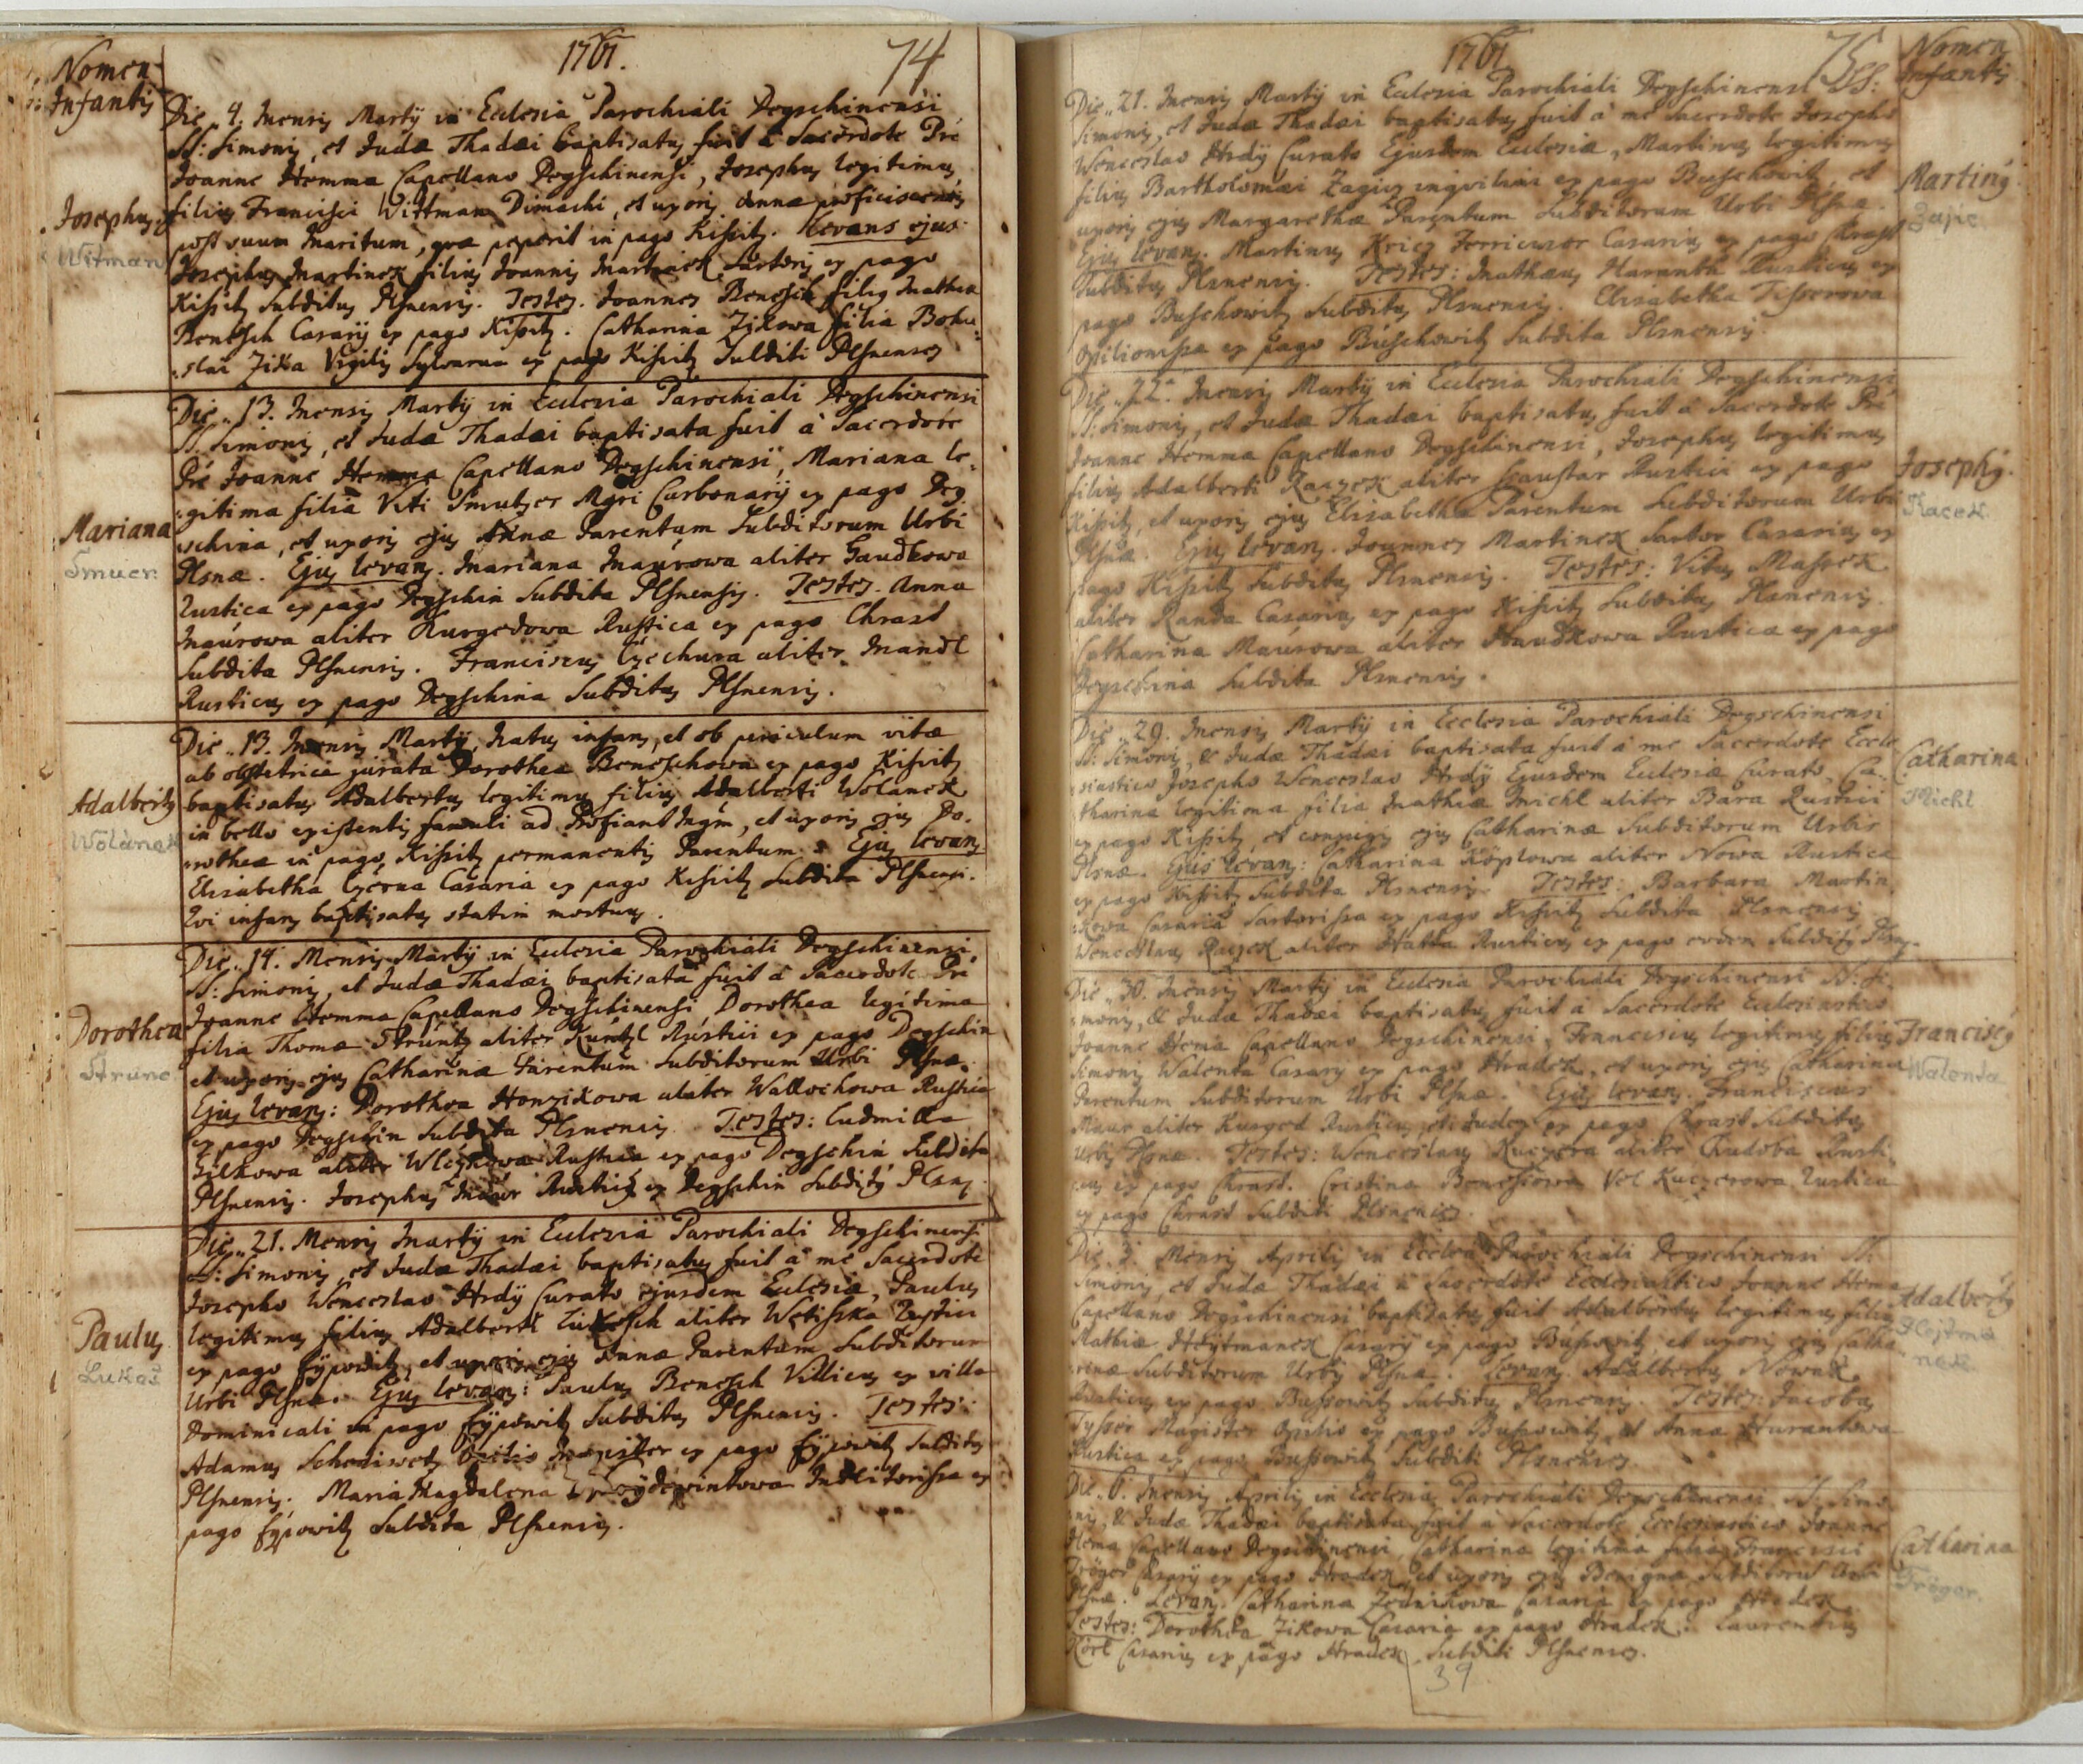 Nomen
Infantis
1761.
74
Die 4. mensis Martÿ in Eclesia Parochiali Degschinensi
SS: Simonis, et Judæ Thadæi baptisatus fuit à Sacerdote Pre
Joanne Hemma Capellano Degschinensi, Josephus legitimus
filius Francisci Wittman Dimachi, et uxoris Annæ proficiscentis
post suum maritum, quæ peperit in pago Kißitz. Levans ejus
Josephus Martinek filius Joannis Martinek Sartoris ex pago
Kißitz Subditus Plsnensis. Testes. Joannes Benesch filius Mathiæ
Benesch Casarÿ ex pago Kißitz. Catharina Zikowa filia Bohu
slai Zika Vigilis Sylvarum ex pago Kißitz Subditi Plsnenses
Josephus
Witman
Die 13. mensis Martÿ in Eclesia Parochiali Degschinensi
SS. Simonis, et Judæ Thadæi baptisata fuit à Sacerdote
Pre Joanne Hemma Capellano Degschinensi, Mariana le
gitima filia Viti Smutzer Mgri Carbonarÿ ex pago Deg
schina, et uxoris ejus Annæ Parentum Subditorum Urbi
Plsnæ. Ejus levans. Mariana Maurowa aliter Gaudkowa
Rustica ex pago Degschin Subdita Plsnensis. Testes. Anna
Maurowa aliter Kurgedowa Rustica ex pago Chrast
Subdita Plsnensis. Franciscus Czechura aliter Mandl
Rusticus ex pago Degschina Subditus Plsnensis.
Mariana
Smucr
Die 13. Mensis Martÿ, natus infans, et ob periculum vitæ
ab obstetrice jurata Dorothea Beneschowa ex pago Kißitz
baptisatus Adalbertus legitimus filius Adalberti Wolanek
in bello existentis famuli ad Profiant Wgm, et uxoris ejus Do
rotheæ in pago Kißitz permanentis Parentum. Ejus levans
Elisabetha Czerna Casaria ex pago Kißitz Subdita Plsnensi.
Qvi infans baptisatus statim mortuus.
Adalbertus
Wolànek
Die 14. Mensis Martÿ in Eclesia Parochiali Degschinensi
SS: Simonis, et Judæ Thadæi baptisata fuit à Sacerdote Pre
Joanne Hemma Capellano Degschinensi Dorothea legitima
filia Thomæ Struntz aliter Kuntzl Rustici ex pago Degschin
et uxoris ejus Catharinæ Parentum Subditorum Urbi Plsnæ.
Ejus levans: Dorothea Honzikowa aliter Wallochowa Rustica
ex pago Degschin Subdita Plsnensis. Testes: Ludmilla
Gilkowa aliter Wlczkowa Rustica ex pago Degschin Subdita
Plsnensis. Josephus Maur Rusticus ex Degschin Subditus Plsns.
Dorothea
Strunc
Die 21. Mensis Martÿ in Eclesia Parochiali Degschinensi
SS: Simonis, et Judæ Thadæi baptisatus fuit à me Sacerdote
Josepho Wenceslao Hrdÿ Curato ejusdem Eclesiæ, Paulus
legitimus filius Adalberti Lukesch aliter Wetißka Rustici
ex pago Eÿpowitz, et uxoris ejus Annæ Parentum Subditorum
Urbi Plsnæ. Ejus levans: Paulus Benesch Villicus ex villa
Dominicali in pago Eÿpowitz Subditus Plsnensis. Testes:
Adamus Magister ex pago Eÿpowitz Subditus
Plsnensis. Maria Magdalena Molitorissa ex
pago Eÿpowitz Subdita Plsnensis.
Paulus
Lukeš
1761
75
Nomen
Infantis
Die 21. mensis Martÿ in Eclesia Parochiali Degschinensi SS:
Simonis, et Judæ Thadæi baptisatus fuit à me Sacerdote Josepho
Wenceslao Hrdÿ Curato Ejusdem Eclesiæ, Martinus legitimus
filius Bartholomæi Zagicz inqvilini ex pago Buschowitz, et
uxoris ejus Margarethæ Parentum Subditorum Urbi Plsnæ.
Ejus levans. Martinus Kriez Casarius ex pago Chrast
Subditus Plsnensis. Testes: Mathæus Haranth Rusticus ex
pago Buschowitz Subditus Plsnensis. Elisabetha Tisserowa
Opilionissa ex pago Buschowitz Subdita Plsnensis.
Martinus
Zajic
Die 22. mensis Martÿ in Eclesia Parochiali Degschinensi
SS: Simonis, et Judæ Thadæi baptisatus fuit à Sacerdote Pre
Joanne Hemma Capellano Degschinensi, Josephus legitimus
filius Adalberti Raczek aliter Rustici ex pago
Kißitz, et uxoris ejus Elisabethæ Parentum Subditorum Urbi
Plsnæ. Ejus levans. Joannes Martinek Sartor Casarius ex
pago Kißitz Subditus Plsnensis. Testes: Vitus Massek
aliter Randa Casarius ex pago Kißitz Subditus Plsnensis.
Catharina Maurowa aliter Haudkowa Rustica ex pago
Degschina Subdita Plsnensis.
Josephus.
Racek
Die 29. mensis Martÿ in Ecclesia Parochiali Degschinensi
SS: Simonis, & Judæ Thadæi baptisata fuit à me Sacerdote Eccle
siastico Josepho Wenceslao Hrdÿ Ejusdem Eclesiæ Curato, Ca
tharina legitima filia Mathiæ Michl aliter Bara Rustici
ex pago Kißitz, et conjugis ejus Catharinæ Subditorum Urbis
Plsnæ. Ejus levans: Catharina Köpslowa aliter Nowa Rustica
ex pago Kißitz Subdita Plsnensis. Testes: Barbara Martin
kowa Casaria Sartorissa ex pago Kißitz Subdita Plsnensis
Wenceslaus Raczek aliter Hatla Rusticus ex pago eodem Subditus Plsns.
Catharina
Michl
Die 30. mensis Martÿ in Eclesia Parochiali Degschinensi SS: Si
monis, & Judæ Thadæi baptisatus fuit à Sacerdote Eclesiastico
Joanne Hema Capellano Degschinensi, Franciscus legitimus filius
Simonis Walenta Casarÿ ex pago Hradek, et uxoris ejus Catharinæ
Parentum Subditorum Urbi Plsnæ. Ejus levans. Franciscus
Maur aliter Kurged Rusticus et Judex ex pago Chrast Subditus
Urbis Plsnæ. Testes: Wenceslaus Kuczera aliter Chudoba Rusti
cus ex pago Chrast. Cristina Benessowa Vel Kuczerowa Rustica
ex pago Chrast Subditi Plsnenses.
Franciscus
Walenta
Die 3. Mensis Aprilis in Ecclesia Parochiali Degschinensi SS.
Simonis, et Judæ Thadæi à Sacerdote Ecclesiastico Joanne Hema
Capellano Degschinensi baptisatus fuit Adalbertus legitimus filius
Mathiæ Heÿtmanek Casarÿ ex pago Bussowitz, et uxoris ejus Catha
rinæ Subditorum Urbis Plsnæ. Levans. Adalbertus Nowak
Rusticus ex pago Bussowitz Subditus Plsnensis. Testes: Jacobus
Tysser Magister Opilio ex pago Bussowitz, et Anna Hrurantowa
Rustica ex pago Bussowitz Subditi Plsnenses.
Adalbertus
Hejtma
nek
Die 6. mensis Aprilis in Ecclesia Parochiali Degschinensi SS. Simo
nis, & Judæ Thadæi baptisata fuit à Sacerdote Ecclesiastico Joanne
Hema Capellano Degschinensi, Catharina legitima filia Francisci
Tröger Casarÿ ex pago Hradek, et uxoris ejus Benignæ Subditorum Urbi
Plsnæ. Levans. Catharina Zednikowa Casaria ex pago Hradek.
Testes: Dorothea Zikowa Casaria ex pago Hradek. Laurentius
Körl Casarius ex pago Hradek Subditi Plsnenses.
Catharina
Tröger.
39